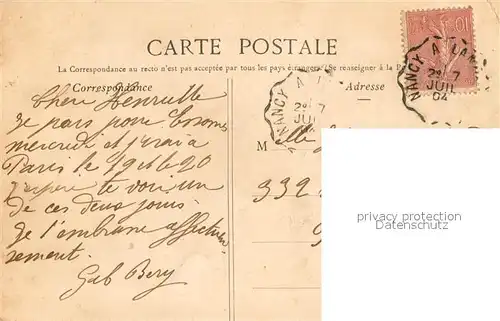 CARTE POSTALE
La Correspondance au recto n'est pas acceptée par tous les pays étrangers. (Se renseigner à la P
Correspondance
Adresse
10
NANCY A LAN
2E 7
JUIL
04
NANCY A
2E 7
JUI
04
M elle
332
Chère Henriette
Je pars pour
mercredi et j'irai à
Paris le 19 et le 20
J'espère te voir un
de ces deux jours
Je t'embrasse affectueu
sement.
Gab Bery
privacy protection
Datenschutz